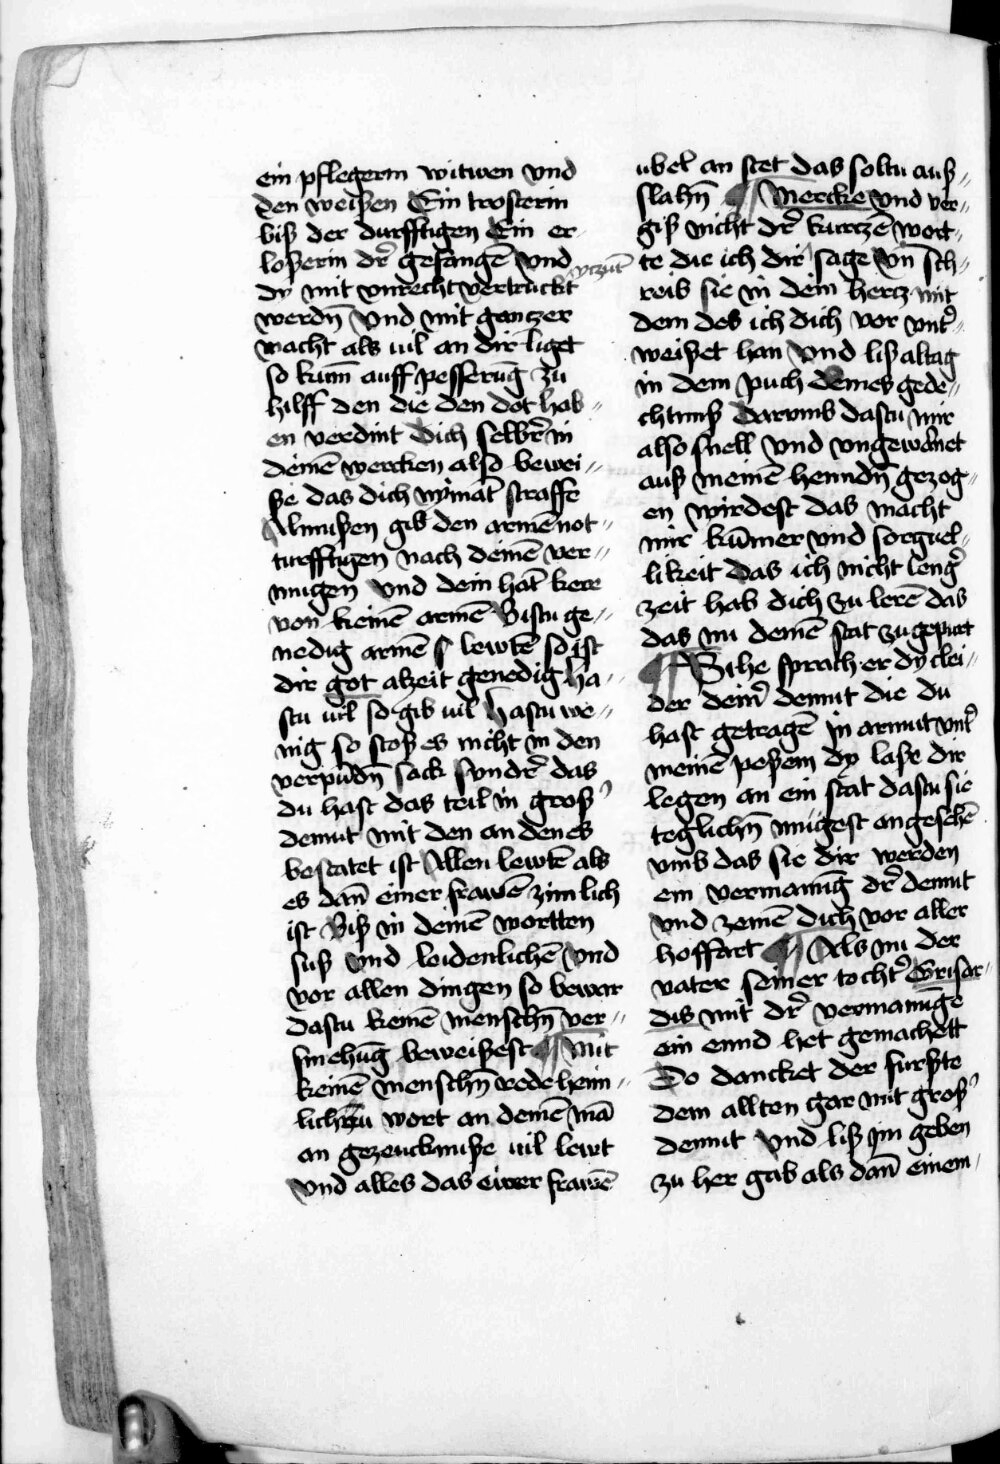 ein pflegerin witwen vnd
den weisßen Ein trosterin
biß der durfftigen Ein er-
loßerin dr̄ gefangē vnd
dy mit vnrecht vertruckt
werdn̄ Vnd mit gantzer
macht als uil an dir liget
so kum̄ auff pesserūg zu
hilff den die den dot hab-
en verdint Dich selbr̄ in
deinē wercken also bewei-
ße das dich nȳmāt straffe
Almußen gib den armē not-
turfftigen nach deinē ver-
mugen vnd dein hāt kere
von keinē armē Bistu ge-
nedig armē lewtē so ist
dir got alzeit genedig ha-
stu uil so gib uil hastu we-
nig so stoß es nicht in den
verpūdn̄ sack sundr̄ das
du hast das teil in groß
demut mit den an den es
bestatet ist Allen lewtē als
es dan̄ einer frawē zimlich
ist Biß in deinē wortten
suß vnd leidenlichē vnd
vor allen dingen so bewar
dastu keinē menschn̄ ver-
smehūg beweißest ¶ Mit
keinē menschn̄ rede heim-
lich wort an deinē mā
an gezeucknuße uil lewt
vnd alles das einer frawē
ubel an stet das soltu auß-
slahn̄ ¶ Mercke vnd ver-
giß nicht dr̄ kurtzē wort-
te die ich dir sage vn̄ sch-
reib sie in dein hertz mit
dem des ich dich vor vnt̄-
weißet han Vnd liß altag
in dem puch deines gede-
chtnuß Darvmb dastu mir
also snell vnd vngewānet
auß meinē henndn̄ gezog-
en wirdest das macht
mir kūmer vnd sorguel-
likeit das ich nicht lenḡ
zeit hab dich zu lerē das
das nu deinē stat zu gepurt
¶ Sihe sprach er dy clei-
der dein̄ demut die du
hast getragē in armut vnt̄
meinē peßem dy laße dir
legen an ein stat dastu sie
teglichn̄ mugest angesehē
vmb das sie dir werden
ein vermanūg dr̄ demut
vnd zemē dich vor aller
hoffart ¶ Als nu der
vater seiner tocht̄ Grisar-
dis mit dr̄ vermanūge
ein ennd het gemachett
Do dancket der furßte
dem allten gar mit groß
demut vnd liß im geben
zu her gab als dan̄ einem-